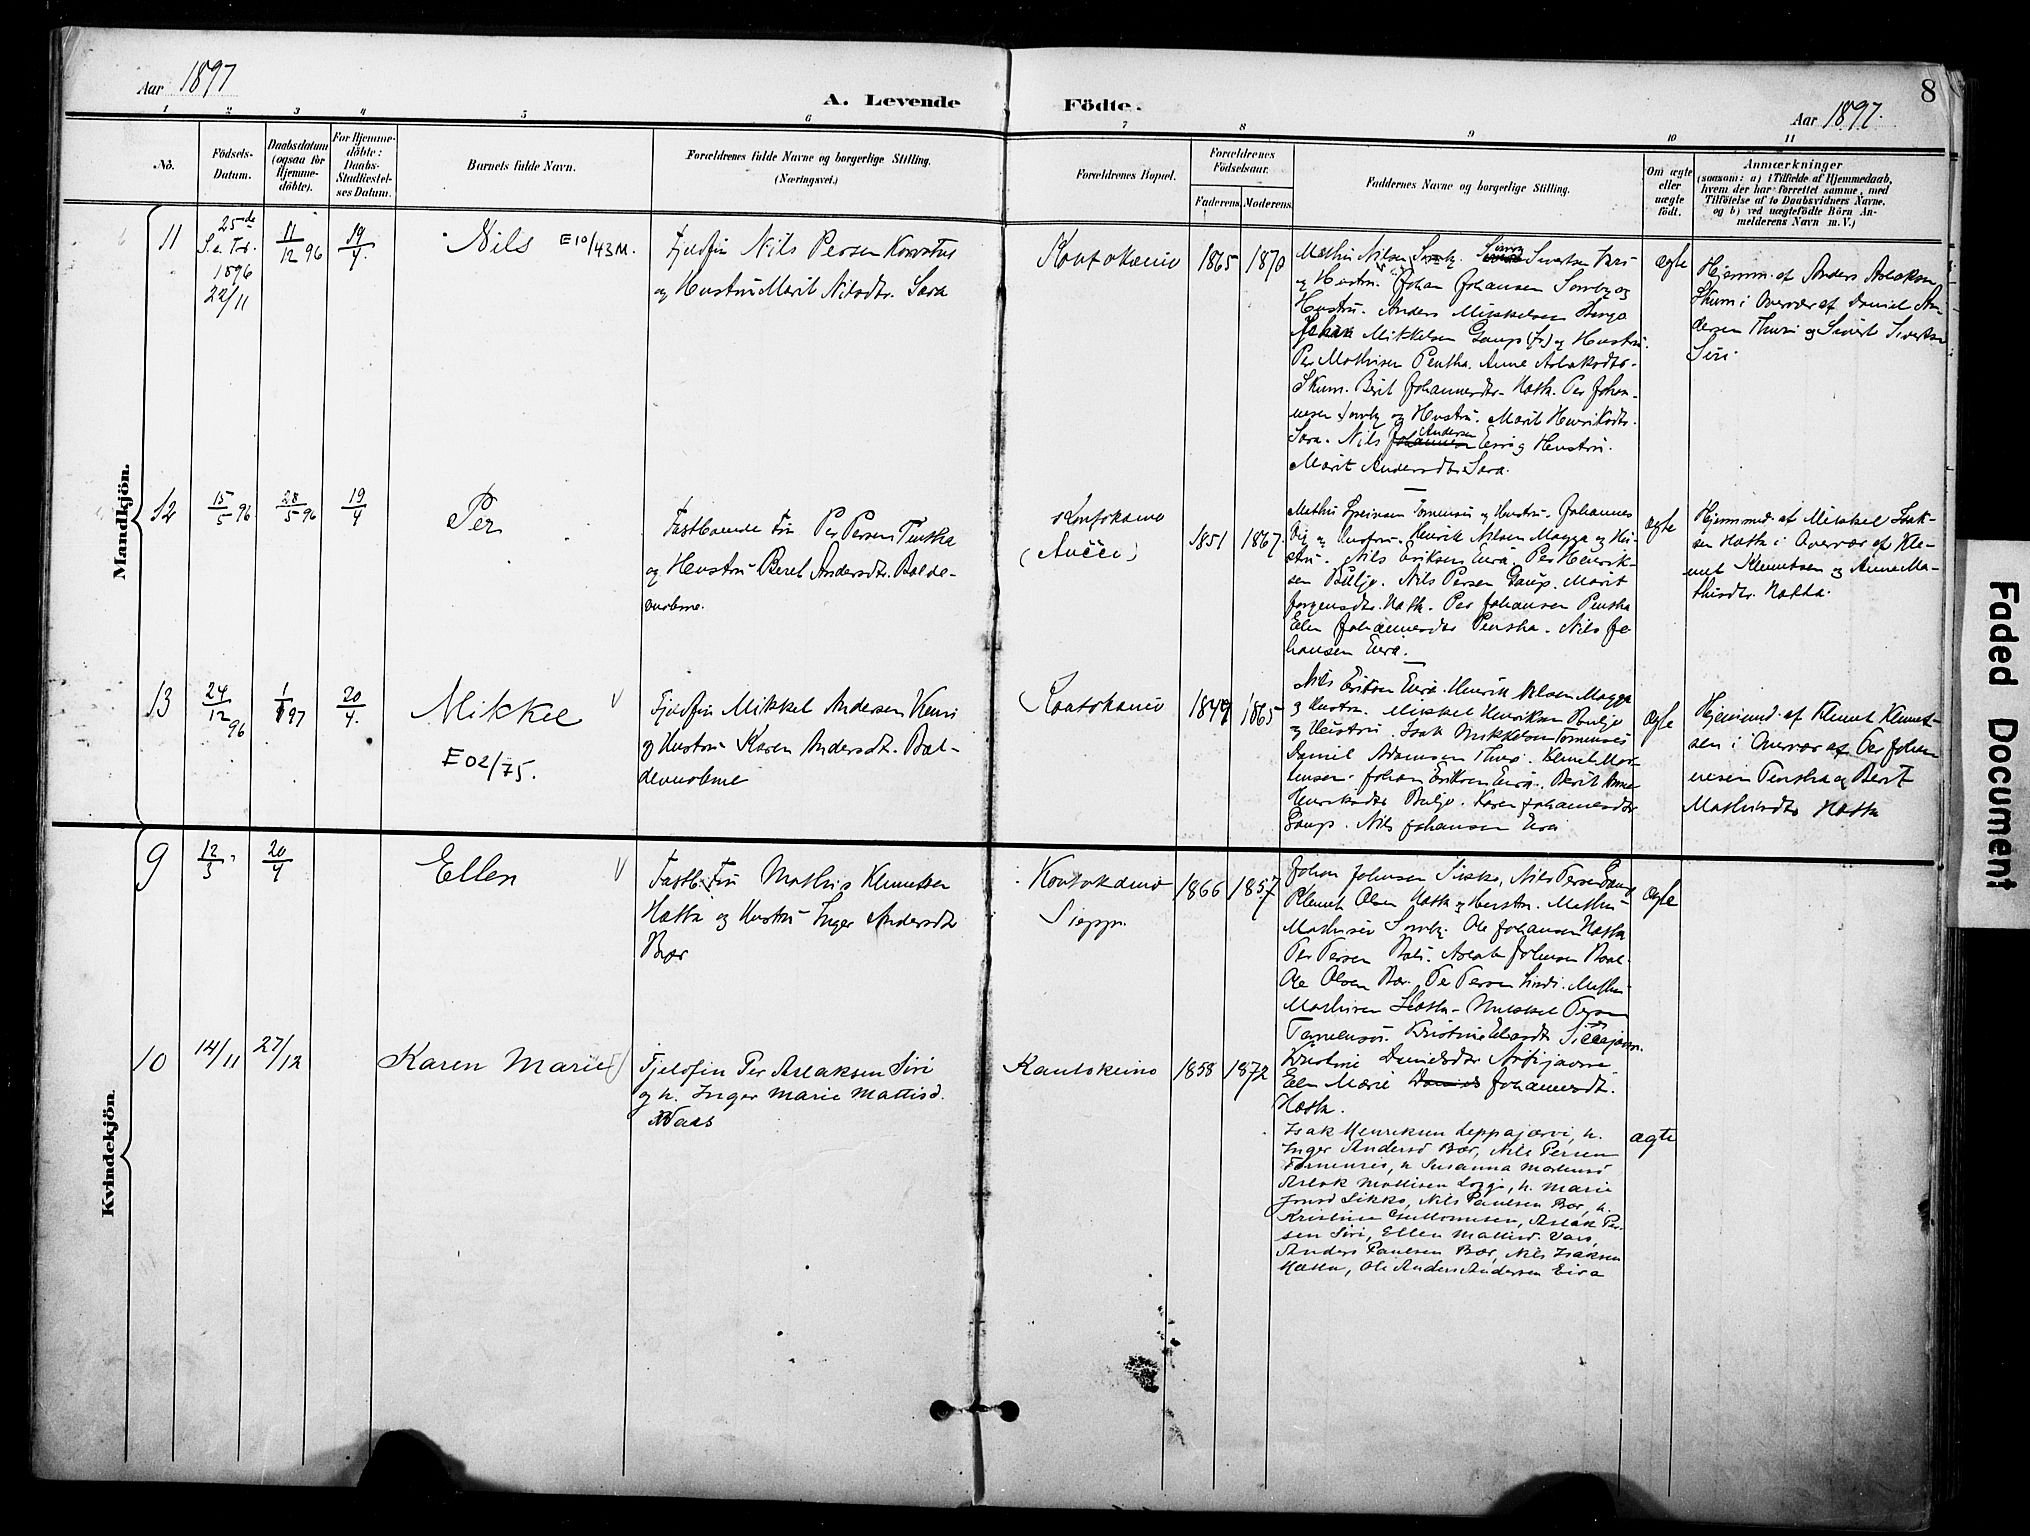 Aar 1897
A. Levende Födte.
8
Aar 1897.
1 2 3 4 5 6 7 8 9 10 11
No.
Födsels-
Datum.
Daabsdatum
(ogsaa for
Hjemme-
döbte).
For Hjemme-
döbte:
Daabs-
Stadfæstel-
ses Datum.
Barnets fulde Navn.
Forældrenes fulde Navne og borgerlige Stilling.
(Næringsvei.)
Forældrenes Bopæl.
Forældrenes
Födselsaar.
Faderens
Moderens.
Faddernes Navne og borgerlige Stilling.
Om ægte
eller
uægte
født.
Anmærkninger
(saasom: a) i Tilfælde af Hjemmedaab,
hvem der har forrettet samme, med
Tilföielse af to Daabsvidners Navne.
og b) ved uægtefödte Börn An-
melderens Navn m. V.)
Mandkjön.
11
25de
S. e. Tr.
1896
22/11
11/12 96
19/4
Nils E10/43M.
Fjeldfin Nils Persen
og Hustru Marit Nilsdtr. Sara
Kautokeino
1865
1870
Mathis Nilsen Somby. Sivertsen
og Hustru. Johan Johansen Somby og
Hustru. Anders Mikkelsen
Mikkelsen Gaup og Hustru.
Per Mathisen Pentha. Anne Aslaksdtr.
Skum. Berit Johannesdtr. Hætta. Per Johan-
nesen Somby og Hustru. Marit Henriksdtr.
Sara. Nils Andersen Eira og Hustru.
Marit Andersdtr. Sara.
ægte
Hjemmed. af Anders Aslaksen
Skum i Overvær af Daniel An-
dersen Thuri og Sivert Sivertsen
Siri.
12
15/5 96
28/5 96
19/4
Per
Fastboende Fin Per Persen Penthe
og Hustru Beret Andersdtr. Balde-
vuobme.
Kautokeino
(Avčče)
1851
1867.
Mathis Tornensis og Hustru. Johannes
og Hustru. Henrik Nilsen Magga og Hu-
stru. Nils Eriksen Eira. Per Henrik-
sen Buljo. Nils Persen Gaup. Marit
Jørgensdtr. Hætta. Per Johansen Penthe
Elen Johannesdtr Pentha. Nils Jo-
hansen Eira.
ægte
Hjemmed. af Mikkel Isak-
sen Hætta i Overvær af Kle-
met Klemetsen og Anne Ma-
thisdtr. Hætta.
13
24/12 96
1/1 97
20/4.
Mikkel
E02/75.
Fjeldfin Mikkel Andersen
og Hustru Karen Andersdt. Bal-
devuobme
Kautokeino
1849
1865
Nils Eriksen Eira. Henrik Nilsen Magga
og Hustru. Mikkel Henriksen Buljo
og Hustru. Isak Mikkelsen Tornensis
Daniel Adamsen Thuri. Klemet Mor-
tensen. Johan Eriksen Eira. Berit Anne
Henriksdtr Buljo. Karen Johannesdtr
Gaup. Nils Johansen Eira
ægte
Hjemmed. af Klemet Klemet-
sen i Overvær af Per Johan-
nesen Pentha og Berit
Mathisdtr Hætta
Kvindekjön.
9
12/3
20/4
Ellen
Fastb. Fin Mathis Klemetsen
Hætta og Hustru Inger Andersdtr
Bær
Kautokeino
Siepp.
1866
1857
Johan Johnsen Sikko, Nils Persen Gaup
Klemet Olsen Hætta og Hustru. Mathis
Mathisen Somby. Ole Johansen Hætta
Per Persen Bals. Aslak Johnsen Baal.
Ole Olsen Bær. Per Persen. Mathis
Mathisen Hætta. Mikkel Persen
Tornensis. Kristine
Kristine Danielsdtr.
Elen Marie Johannesdt.
Hætta.
ægte
10
14/11
27/12
Karen Marie
Fjeldfin Per Aslaksen Siri
og h. Inger Marie Mattisd.
Waas
Kautokeino
1858
1872
Isak Henriksen Leppajærvi, h.
Inger Andersd Bær, Nils Persen
Tornensis, h. Susanna Mortensd
Aslak Mattisen Logje, h. Marie
Jonsd Sikko, Nils Paulsen Bær, h.
Kristine Guttormsen, Aslak Per-
sen Siri, Ellen Mattisd. Vars,
Anders Paulsen Bær, Nils Isaksen
Hætta, Ole Anders Andersen Eira
ægte
Faded Document